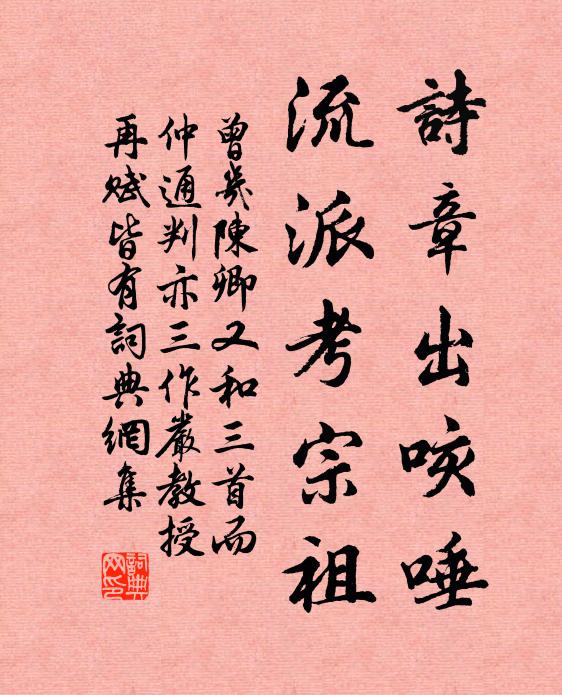 詩章出咳唾
流派考宗祖
曾幾陳卿又和三首而
仲通判亦三作嚴教授
再賦皆有詞典網集
詞典网印